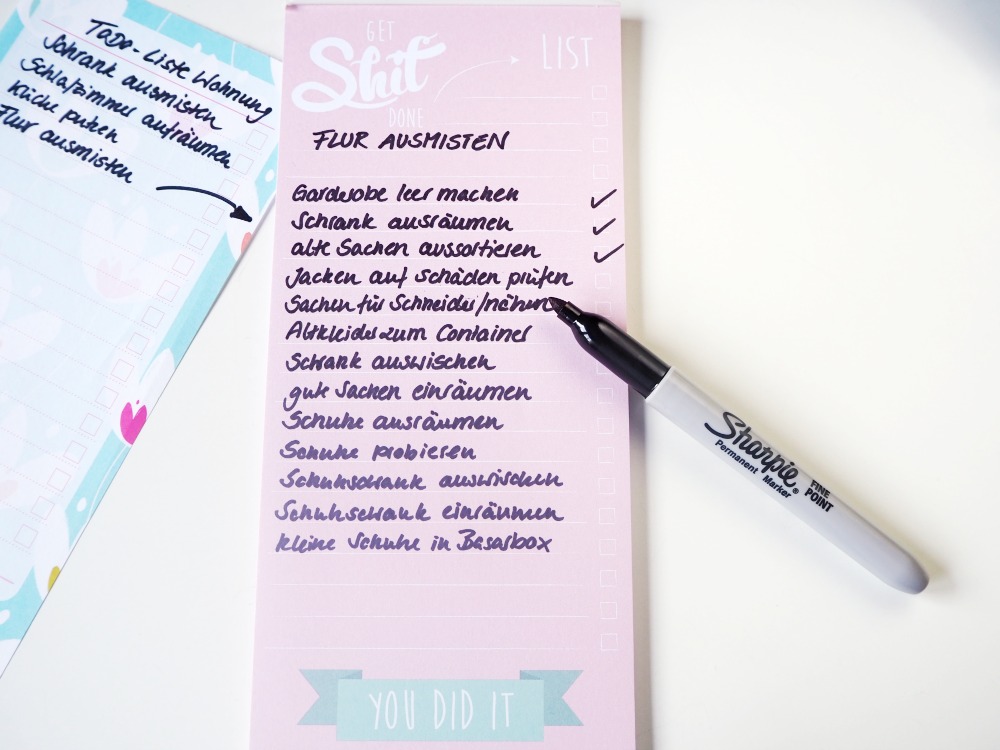 ToDo-Liste Wohnung
Schrank ausmisten
Schlafzimmer aufräumen
Küche putzen
Flur ausmisten
GET
Shit
DONE
LIST
FLUR AUSMISTEN
Garderobe leer machen
Schrank ausräumen
alte Sachen aussortieren
Jacken auf Schäden prüfen
Sachen für Schneider/nähen
Altkleider zum Container
Schrank auswischen
gute Sachen einräumen
Schuhe ausräumen
Schuhe probieren
Schuhschrank auswischen
Schuhschrank einräumen
kleine Schuhe in Basarbox
YOU DID IT
Sharpie®
Permanent Marker
FINE
POINT